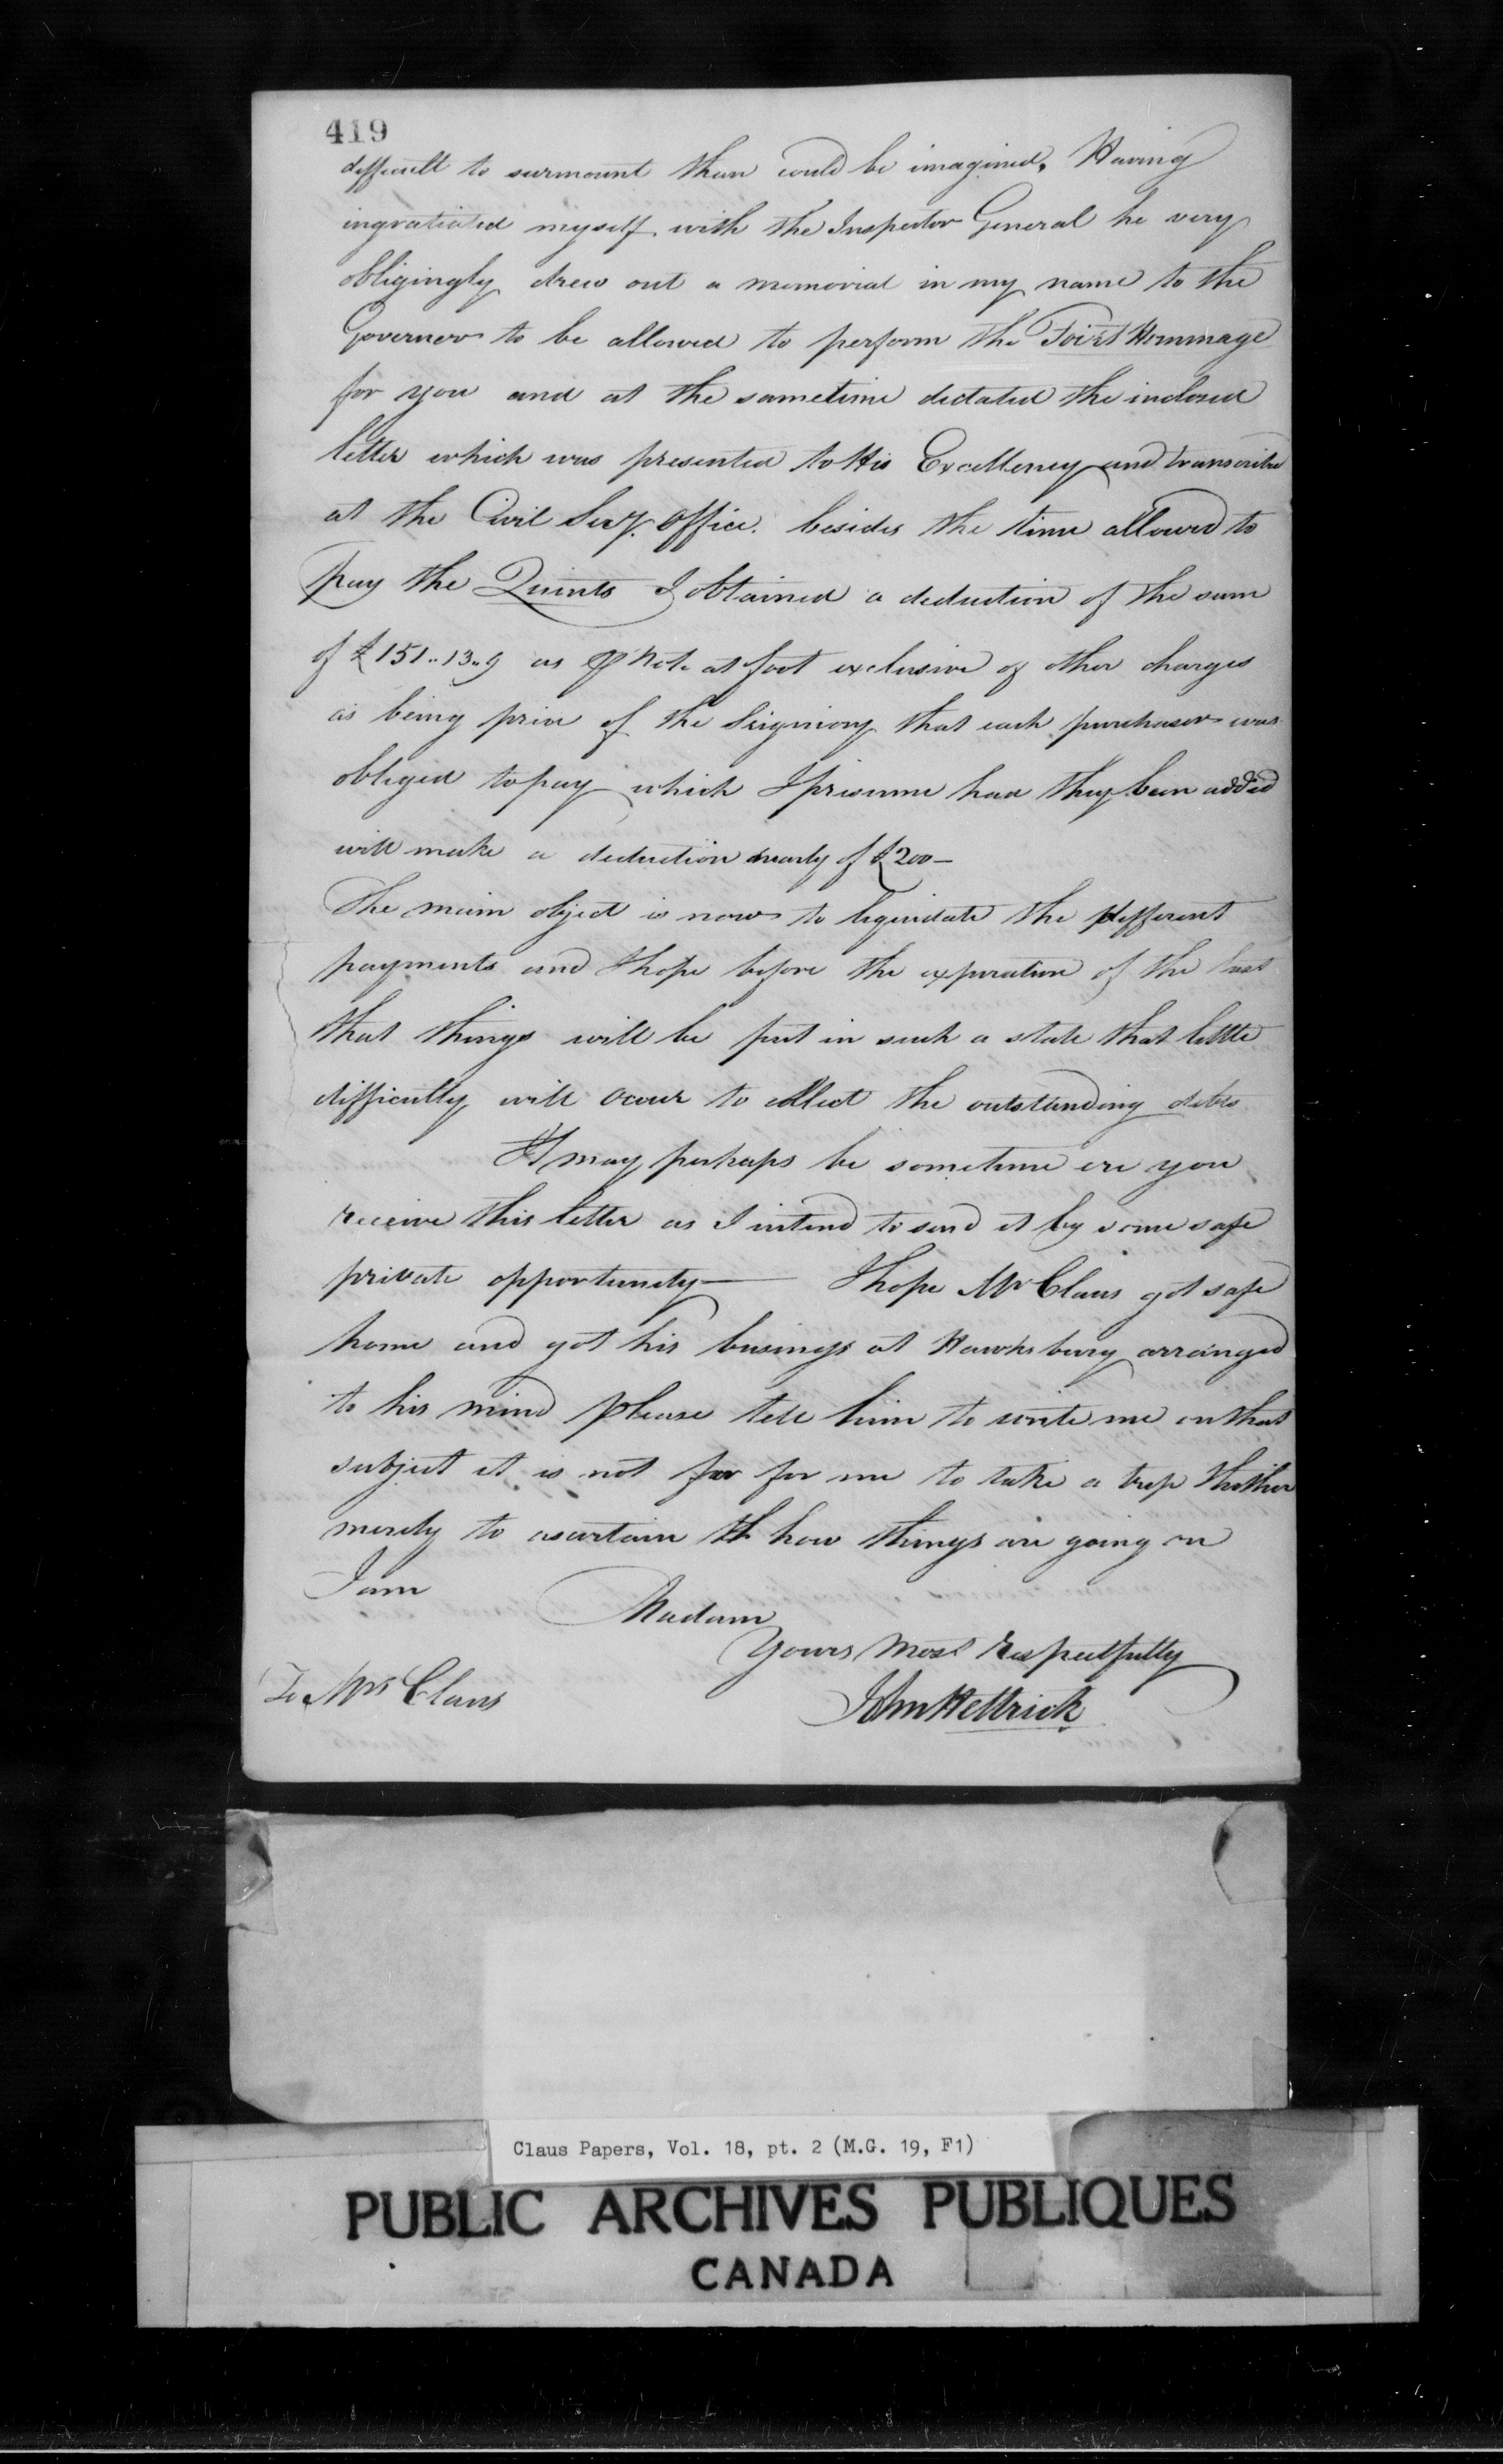 419
difficult to surmount than could be imagined. Having
ingratiated myself with the Inspector General he very
obligingly drew out a memorial in my name to the
Governor to be allowed to perform the Foi et Hommage
for you and at the sametime dictated the inclosed
letter which was presented to His Excellency and transcribed
at the Civil Secy. Office. besides the time allowed to
pay the Quints I obtained a deduction of the sum
of £151..13..9 as Note at foot exclusive of other charges
as being price of the Seigniory that each purchaser was
obliged to pay which I presume had they been added
will make a deduction nearly of £200—
The main object is now to liquidate the different
payments and I hope before the expiration of the last
that things will be put in such a state that little
difficulty will occur to collect the outstanding debts
It may perhaps be sometime ere you
receive this letter as I intend to send it by some safe
private opportunity— I hope Mr Claus got safe
home and got his business at Hawksbury arranged
to his mind please tell him to write me on that
subject it is not far for me to take a trip thither
merely to ascertain th how things are going on
I am
Madam
Yours Most Respectfully
John Hettrick
To Mrs Claus
Claus Papers, Vol. 18, pt. 2 (M.G. 19, F1)
PUBLIC ARCHIVES PUBLIQUES
CANADA